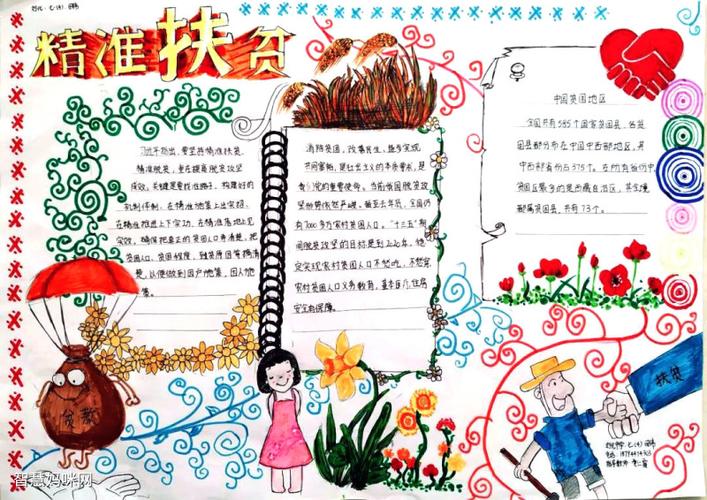 精准扶贫
习近平指出，要坚持精准扶贫、
精准脱贫，重在提高脱贫攻坚
成效。关键是要找准路子、构建好的
机制体制，在精准施策上出实招、
在精准推进上下实功、在精准落地上见
实效。确保把真正的贫困人口弄清楚，把
贫困人口、贫困程度、致贫原因等搞清
楚，以便做到因户施策，因人施
策。
消除贫困，改善民生，逐步实现
共同富裕，是社会主义的本质要求，是
我们党的重要使命。当前我国脱贫攻
坚形势依然严峻。截至去年底，全国仍
有7000多万农村贫困人口。“十三五”期
间脱贫攻坚的目标是到2020年，稳
定实现农村贫困人口不愁吃、不愁穿，
农村贫困人口义务教育、基本医疗、住房
安全有保障。
中国贫困地区
全国共有585个国家贫困县，各贫
困县部分布在中国中西部地区，其
中西部省份占375个。在所有省份中
贫困区最多的是西藏自治区，其全境
都属贫困县，共有73个。
贫教
扶贫
智慧妈咪网